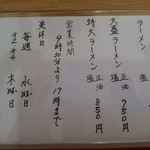 ラーメン
正油
塩
大盛ラーメン
正油
塩
750円
特大ラーメン
正油
塩
850円
営業時間
9時30分より17時まで
定休日
毎週 水曜日
木曜日